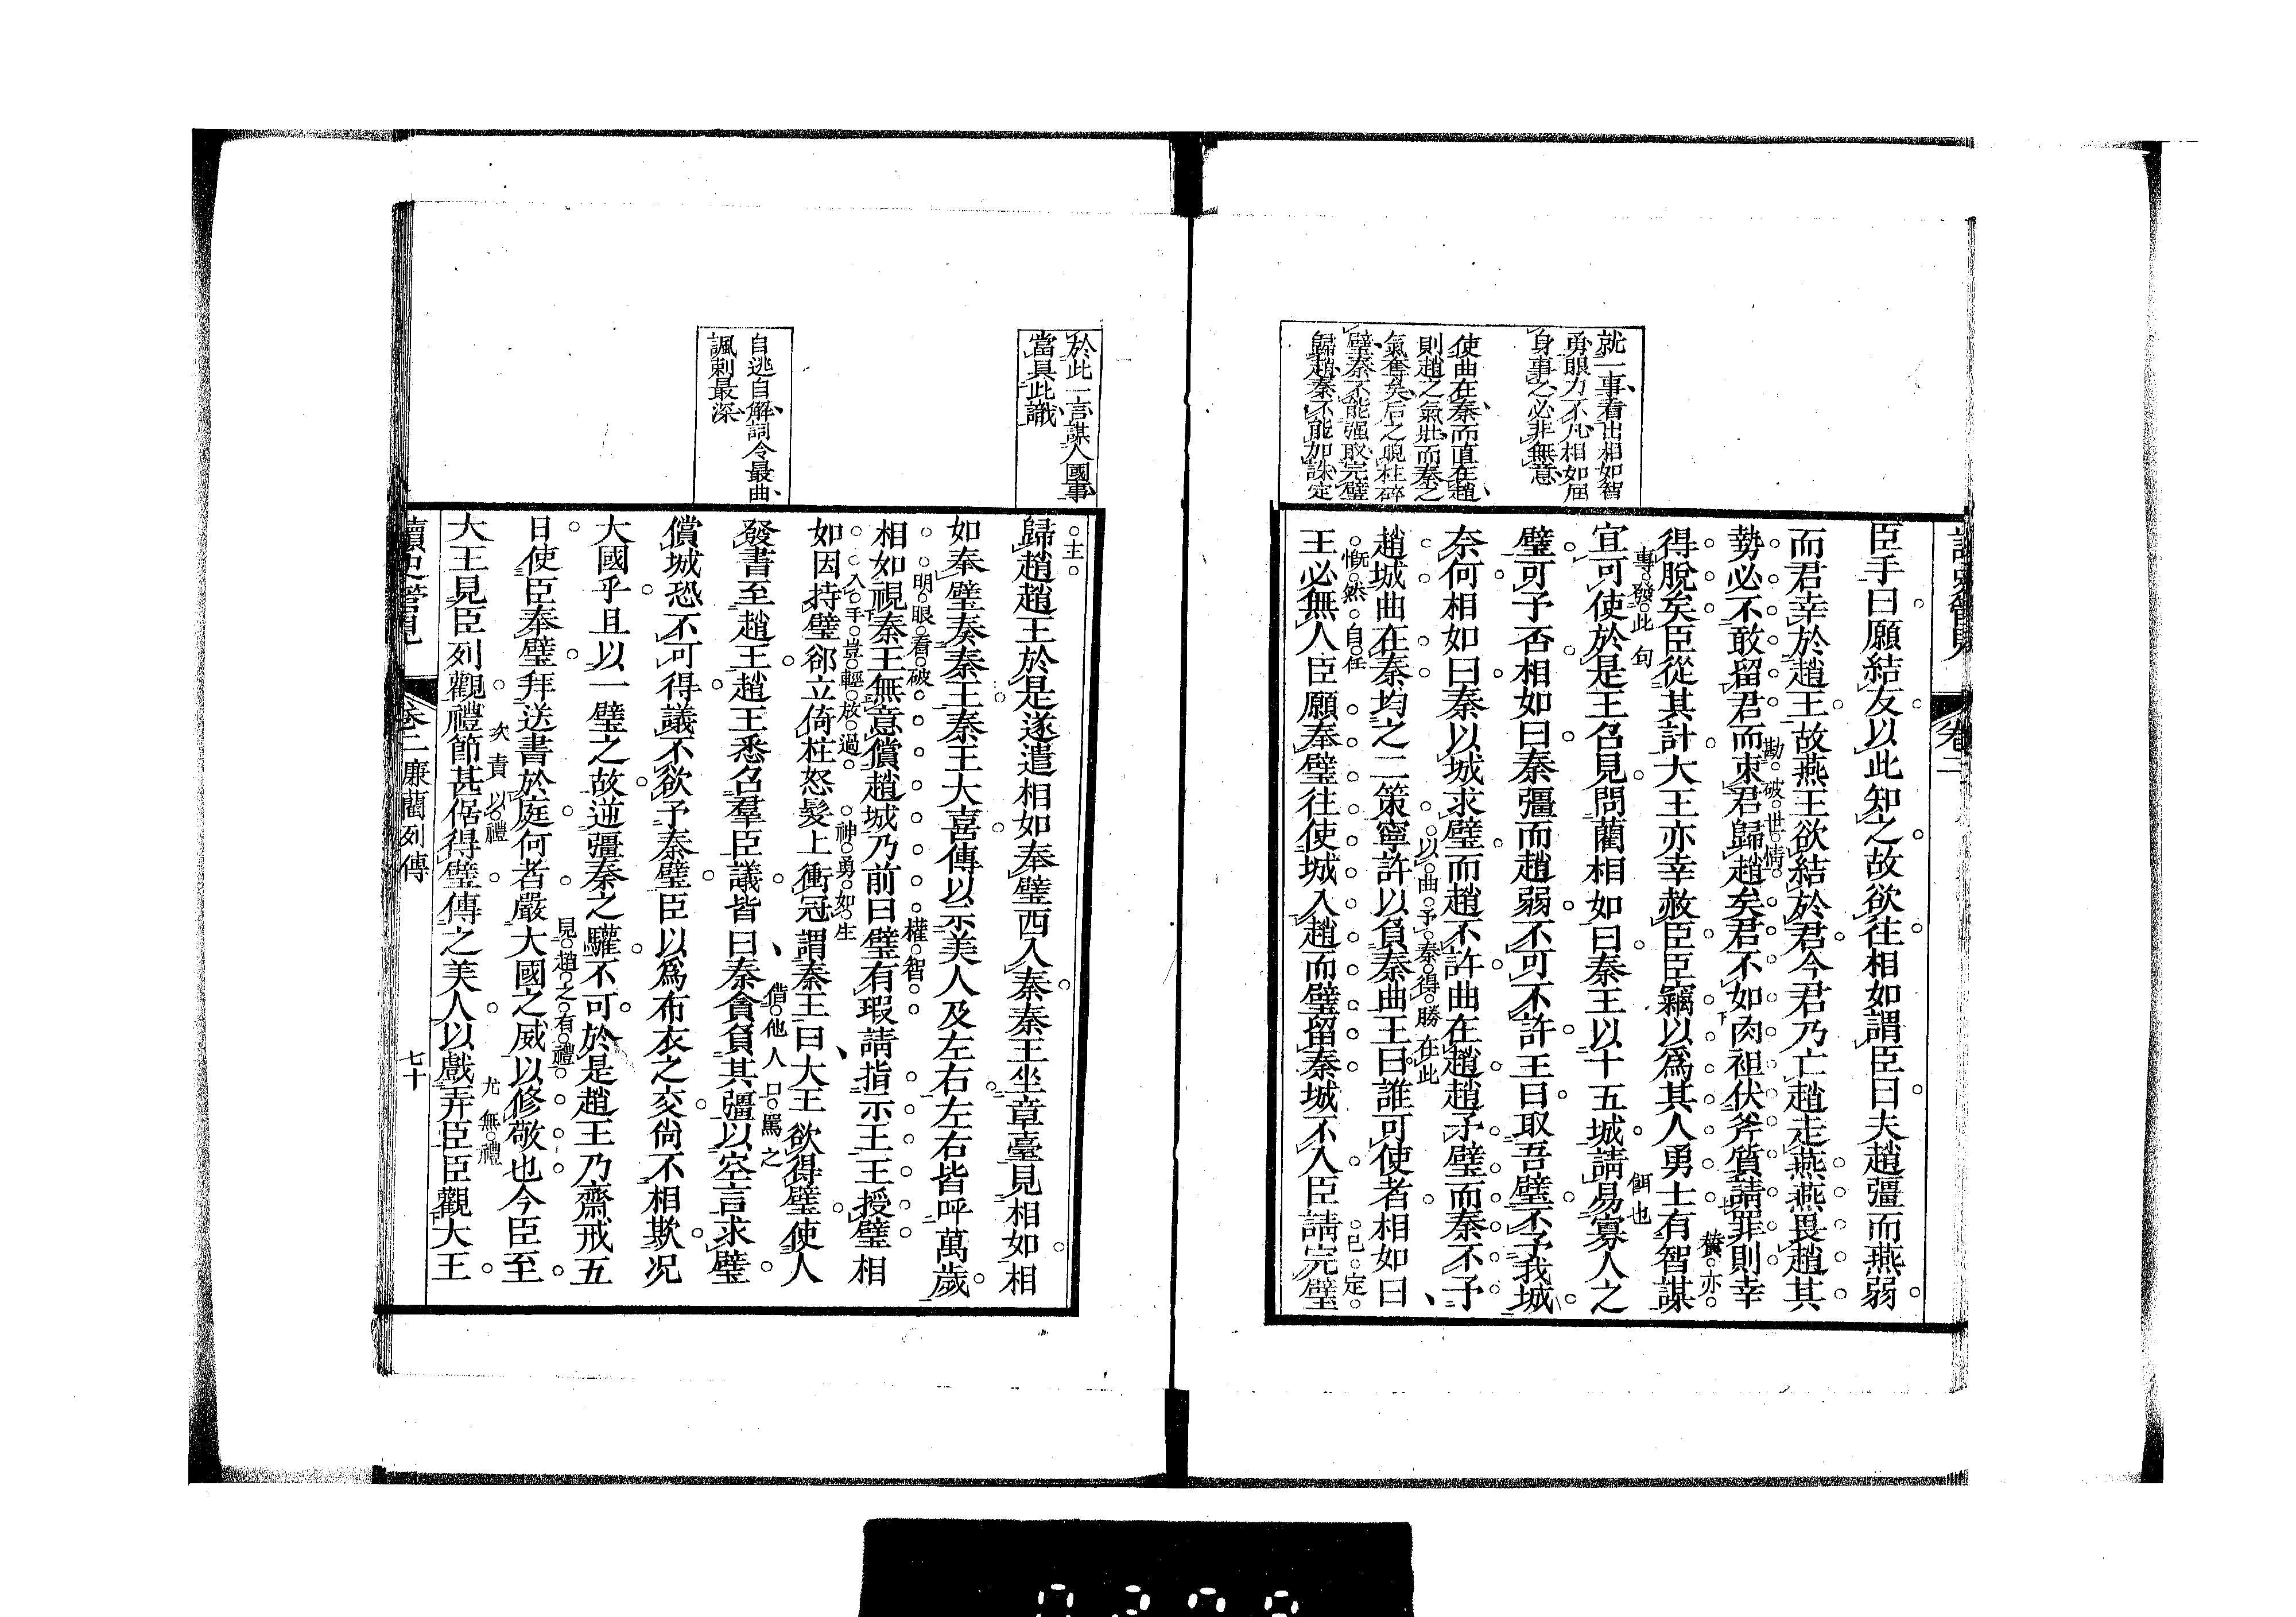 就一事看出相如智
勇眼力不凡相如屈
身事之必非無意
使曲在秦而直在趙
則趙之氣壯而秦之
氣奪矣后之睨柱碎
璧秦不能强取完璧
歸趙秦不能加誅定
卷二
臣手曰願結友以此知之故欲往相如謂臣曰夫趙彊而燕弱
而君幸於趙王故燕王欲結於君今君乃亡趙走燕燕畏趙其
勘破世情
勢必不敢留君而束君歸趙矣君不如肉袒伏斧質請罪則幸
贊亦
得脫矣臣從其計大王亦幸赦臣臣竊以爲其人勇士有智謀
專發此句
餌也
宜可使於是王召見問藺相如曰秦王以十五城請易寡人之
璧可予否相如曰秦彊而趙弱不可不許王曰取吾璧不予我城
奈何相如曰秦以城求璧而趙不許曲在趙趙予璧而秦不予
以曲予秦得勝在此
趙城曲在秦均之二策寧許以負秦曲王曰誰可使者相如曰
慨然自任
已定
王必無人臣願奉璧往使城入趙而璧留秦城不入臣請完璧
於此一言謀人國事
當具此識
自逃自解詞令最曲
諷刺最深
主
歸趙趙王於是遂遣相如奉璧西入秦秦王坐章臺見相如相
如奉璧奏秦王秦王大喜傳以示美人及左右左右皆呼萬歲
明眼看破
權智
相如視秦王無意償趙城乃前曰璧有瑕請指示王王授璧相
入手豈輕放過
神勇如生
如因持璧郤立倚柱怒髮上衝冠謂秦王曰大王欲得璧使人
借他人口罵之
發書至趙王趙王悉召羣臣議皆曰秦貪負其彊以空言求璧
償城恐不可得議不欲予秦璧臣以爲布衣之交尙不相欺况
大國乎且以一璧之故逆彊秦之驩不可於是趙王乃齋戒五
見趙之有禮
日使臣奉璧拜送書於庭何者嚴大國之威以修敬也今臣至
次責以禮
尤無禮
大王見臣列觀禮節甚倨得璧傳之美人以戲弄臣臣觀大王
讀史管見
卷二廉藺列傳
七十